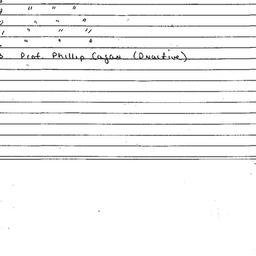 " " "
" " "
" " "
" " "
Prof. Phillip Cagan (Inactive)